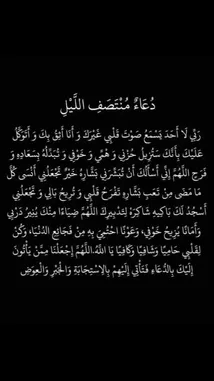 دُعَاءُ مُنْتَصَفِ اللَّيْلِ
رَبِّي لَا أَحَدَ يَسْمَعُ صَوْتَ قَلْبِي غَيْرَكَ وَ أَنَا أَثِقُ بِكَ وَ أَتَوَكَّلُ
عَلَيْكَ بِأَنَّكَ سَتُزِيلُ حُزْنِي وَ هَمِّي وَ خَوْفِي وَ تُبَدِّلُهُ بِسَعَادَةٍ وَ
فَرَجٍ اللَّهُمَّ إِنِّي أَسْأَلُكَ أَنْ تُبَشِّرَنِي بَشَارَةَ خَيْرٍ تَجْعَلُنِي أَنْسَى كُلَّ
مَا مَضَى مِنْ تَعَبٍ بَشَارَةٍ تُفْرِحُ قَلْبِي وَ تُرِيحُ بَالِي وَ تَجْعَلُنِي
أَسْجُدُ لَكَ بَاكِيَةً شَاكِرَةً لِتَدْبِيرِكَ اللَّهُمَّ ضِيَاءً مِنْكَ يُنِيرُ دَرْبِي
وَأَمَانًا يُزِيحُ خَوْفِي، وَعَوْنًا احْتَمِيَ بِهِ مِنْ فَجَائِعِ الدُّنْيَا، وَكُنْ
لِقَلْبِي حَامِيًا وَشَافِيًا وَكَافِيًا يَا اللَّهُ.اللَّهُمَّ إِجْعَلْنَا مِمَّنْ يَأْتُونَ
إِلَيْكَ بِالدُّعَاءِ فَتَأْتِي إِلَيْهِمْ بِالِاسْتِجَابَةِ وَالْجَبْرِ وَالْعِوَضِ